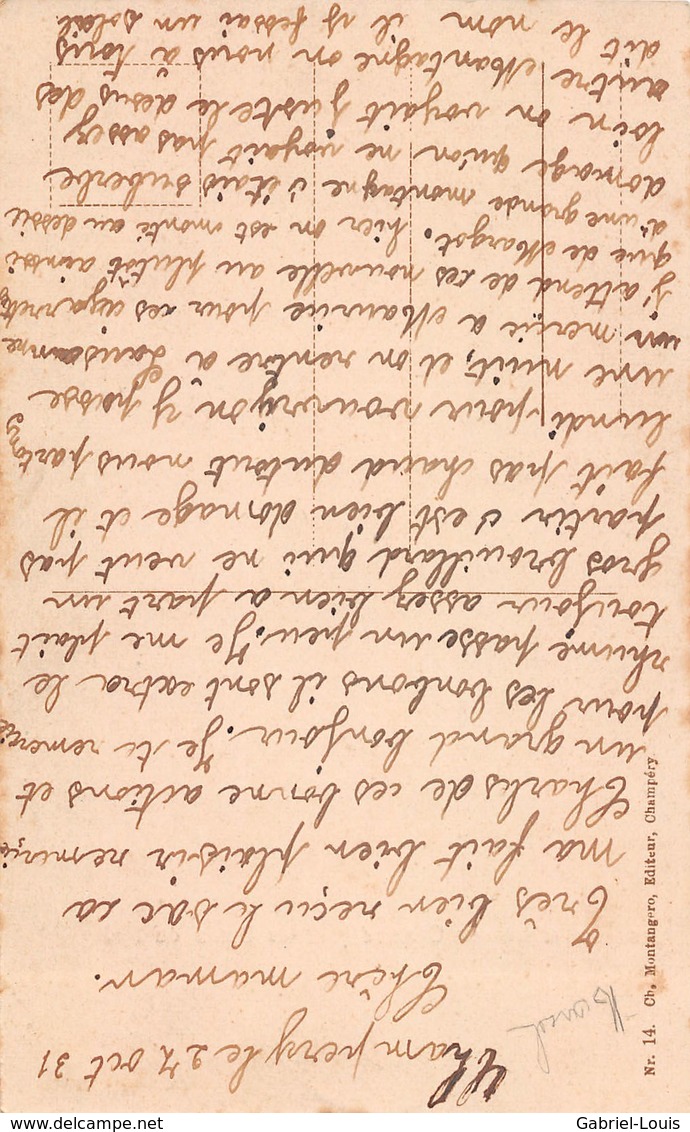 Champery le 27 oct 31
Chère maman.
Très bien reçu le sac ca
ma fait bien plaisir remercie
Charls de ces bonne actions et
un grand bonjour. Je te remercie
pour les bonbons il sont extra le
rhume passe un peu. Je me plait
toujour assez bien a part un
gros brouillard qui ne veut pas
partir c'est bien domage et il
fait pas chaud dutout nous partons
lundi pour vouvry on y passe
une nuit, et on rentre a Lausanne
un merci a Maurice pour ces
j'attend de tes nouvelle au plutôt ainssi
que de Margot. hier on est monté au dessu
d'une grande montagne s'étais suberbe
domage qu'on ne voyait pas assez
loin on voyait juste le desus des
autre Montagne on nous à tous
dit le nom il y fessai un soleil
Nr. 14. Ch. Montangero, Editeur, Champéry
Marcel
Gabriel-Louis